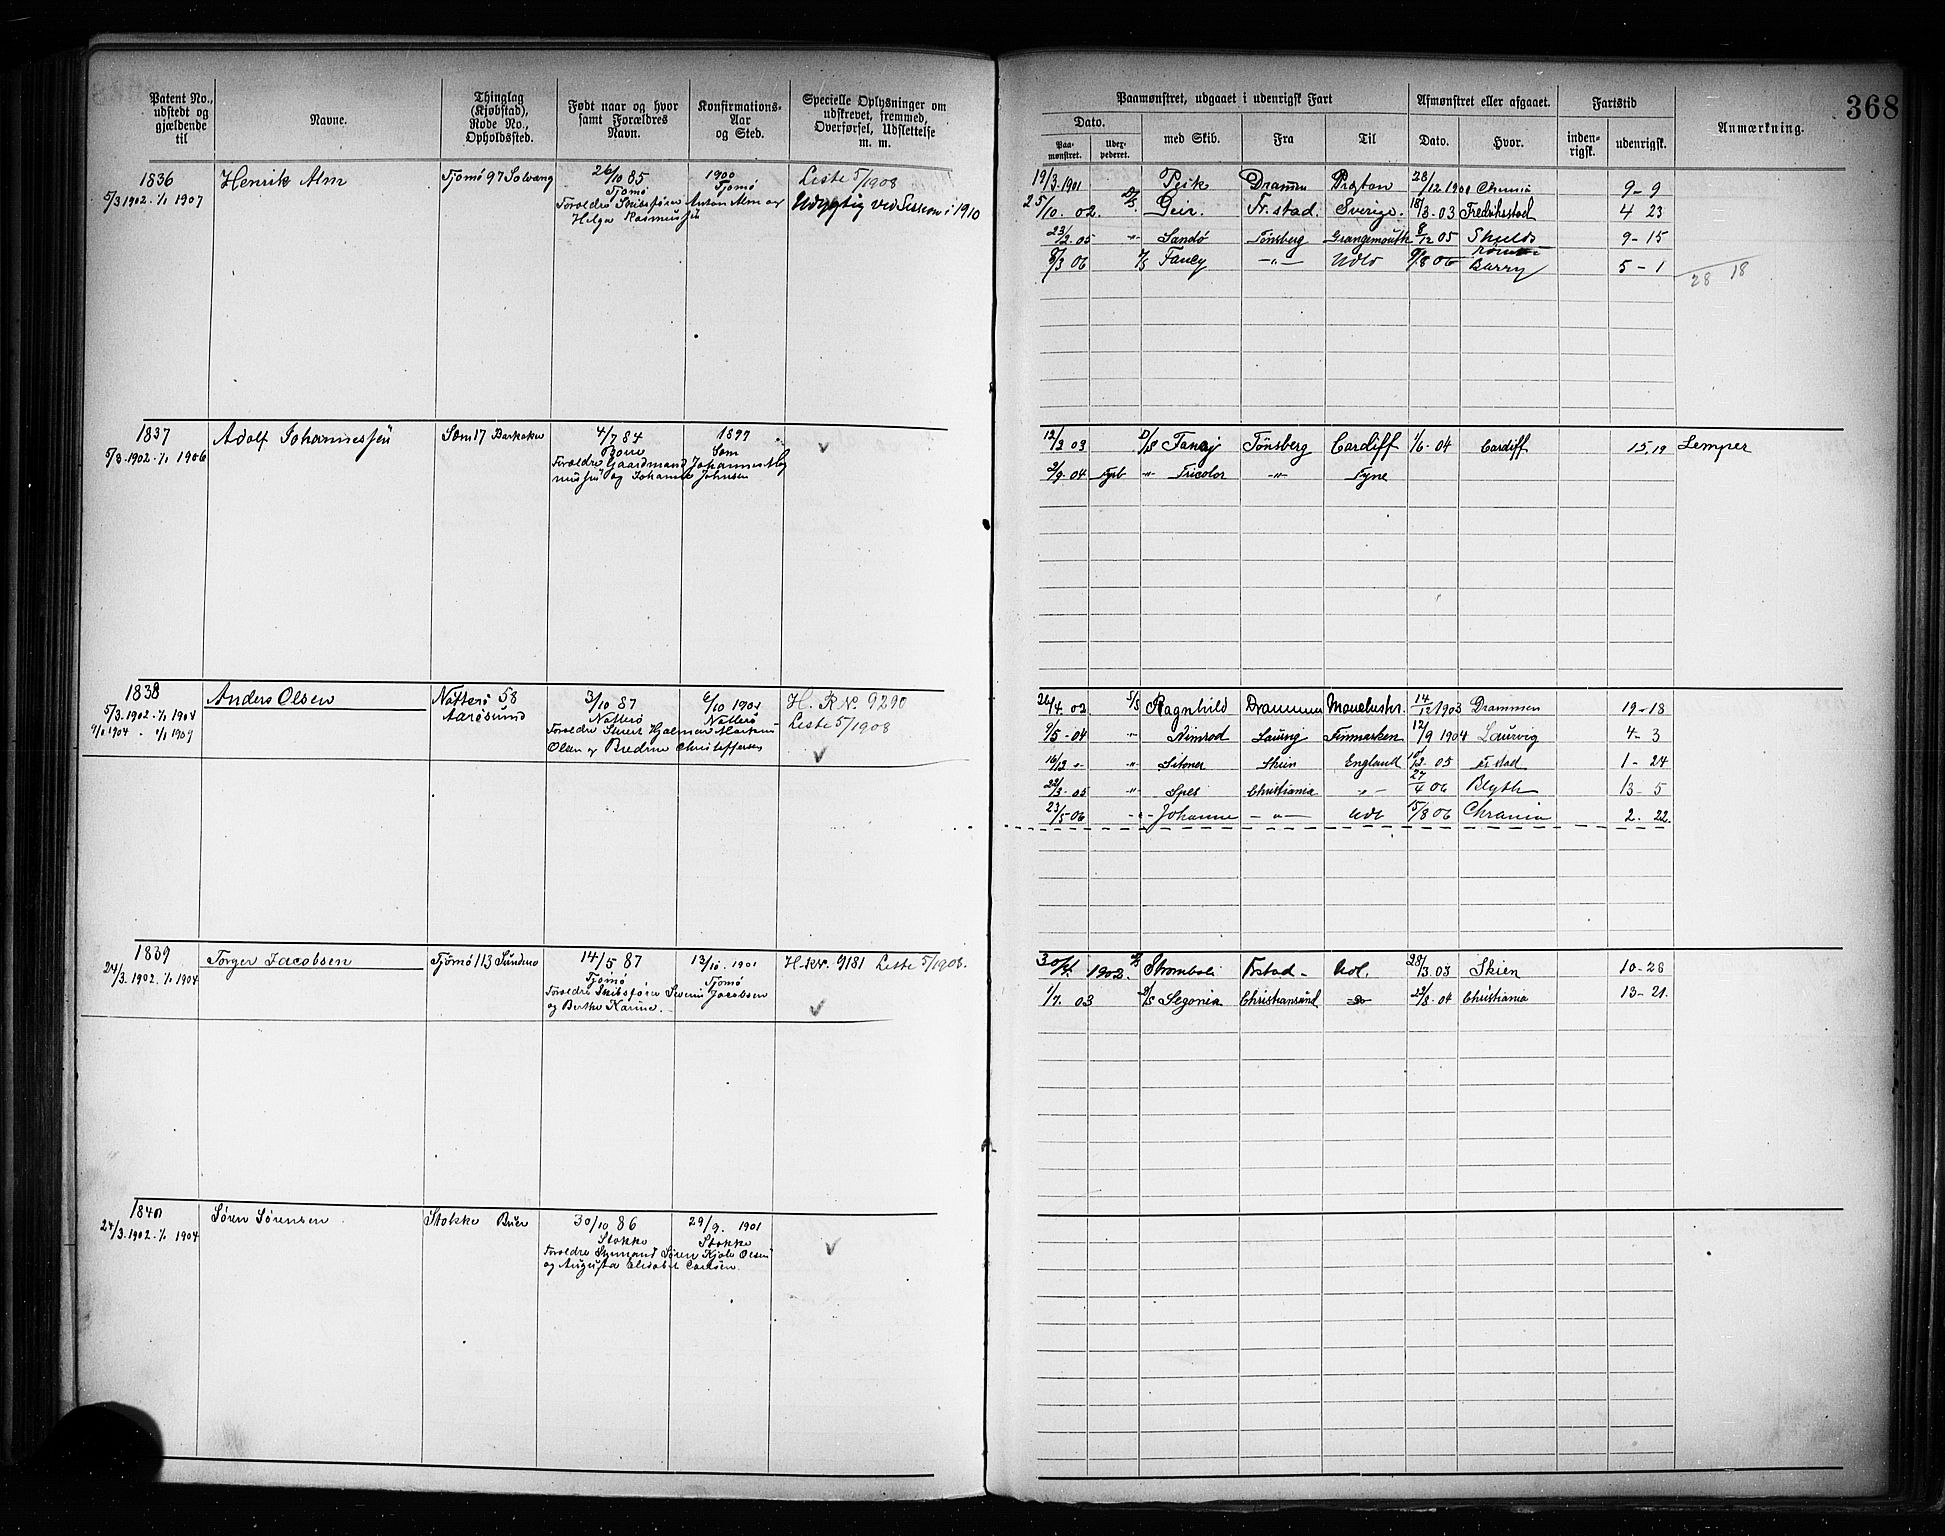 Patent No., udstedt og gjældende til
Navne.
Thinglag (Kjøbstad), Rode No., Opholdssted.
Født naar og hvor samt Forældres Navn.
Konfirmations-Aar og Sted.
Specielle Oplysninger om udskrevet, fremmed, Overførsel, Udslettelse m. m.
Paamønstret, udgaaet i udenrigsk Fart
Dato.
Paa-mønstret.
Uder-pederet.
med Skib.
Fra
Til
Afmønstret eller afgaaet.
Dato.
Hvor.
Fartstid
inden-rigsk.
udenrigsk.
Anmærkning.
368
1836
5/3 1902 - 1/1 1907
Henrik Alm
Tjømø 97 Solvang
26/10 85
Tjømø
1900
Tjømø
Forældre Skibsfører Anton Alm og
Helga Rasmussen
Liste 5/1908
Udygtig ved Session i 1910
19/3 1901 Drammen 28/12 1901 9-9
25/10 02 D/S Geir. Fr.stad. Sverige. 18/3-03 Fredrikstad 4 23
23/2 05 -"- Sandø Tønsberg Grangemouth 8/12 05 Shields 9-15
8/3 06 Fancy -"- Udld 9/8 06 Barry 5-1
28 18
1837
5/3-1902-1/1 1906
Adolf Johannessen
Sem 17 Barkaker
4/7 84
Borre
1899
Sem
Forældre Gaardmand Johannes
og Johanne Johnsen
12/2 03 D/S Fancy Tønsberg Cardiff 1/6-04 Cardiff 15.19 Lemper
2/9-04 -"- Tricolor -"- Tyne
1838
5/3-1902-1/1 1904
1/1 1904 - 1/1 1909
Anders Olsen
Nøtterø 58
Aarøsund
3/10 87
Nøtterø
6/10 1901
Nøtterø
Forældre Hjalmar Markus
Olsen og Christoffersen
H. R Nr. 9290
Liste 5/1908
26/4 02 S/S Ragnhild Drammen Manchester. 14/12 1903 Drammen 19-18
9/5-04 " Nimrod Laurvig Finmarken 12/9 1904 Laurvig 4-3
16/12 " -"- Skien England 10/2 05 Fr stad 1-24
22/3-05 -"- Spes Christiania -"- 27/4 06 Blyth 13-5
23/5-06 -"- Johanne -"- Udl 15/8 06 Chrania 2-22.
1839
24/3-1902-1/1 1904
Torger Jacobsen
Tjømø 113 Sundene
14/5 87
Tjømø
13/10-1901
Tjømø
Forældre Skibsfører Severin Jacobsen
og Berthe Karine.
H.R Nr. 9181 Liste 5/1908.
30/4 1902. Stromboli Frstad - Udl. 28/3-03 Skien 10-28
1/7. 03 D/S Segovia Christiansund do 22/8-04 Christiania 13-21
1840
24/3-1902-1/1 1904
Søren Sørensen
Stokke
30/10 86
Stokke
29/9-1901
Stokke
Forældre Sømand Søren Olsen
og Augusta Elisabet